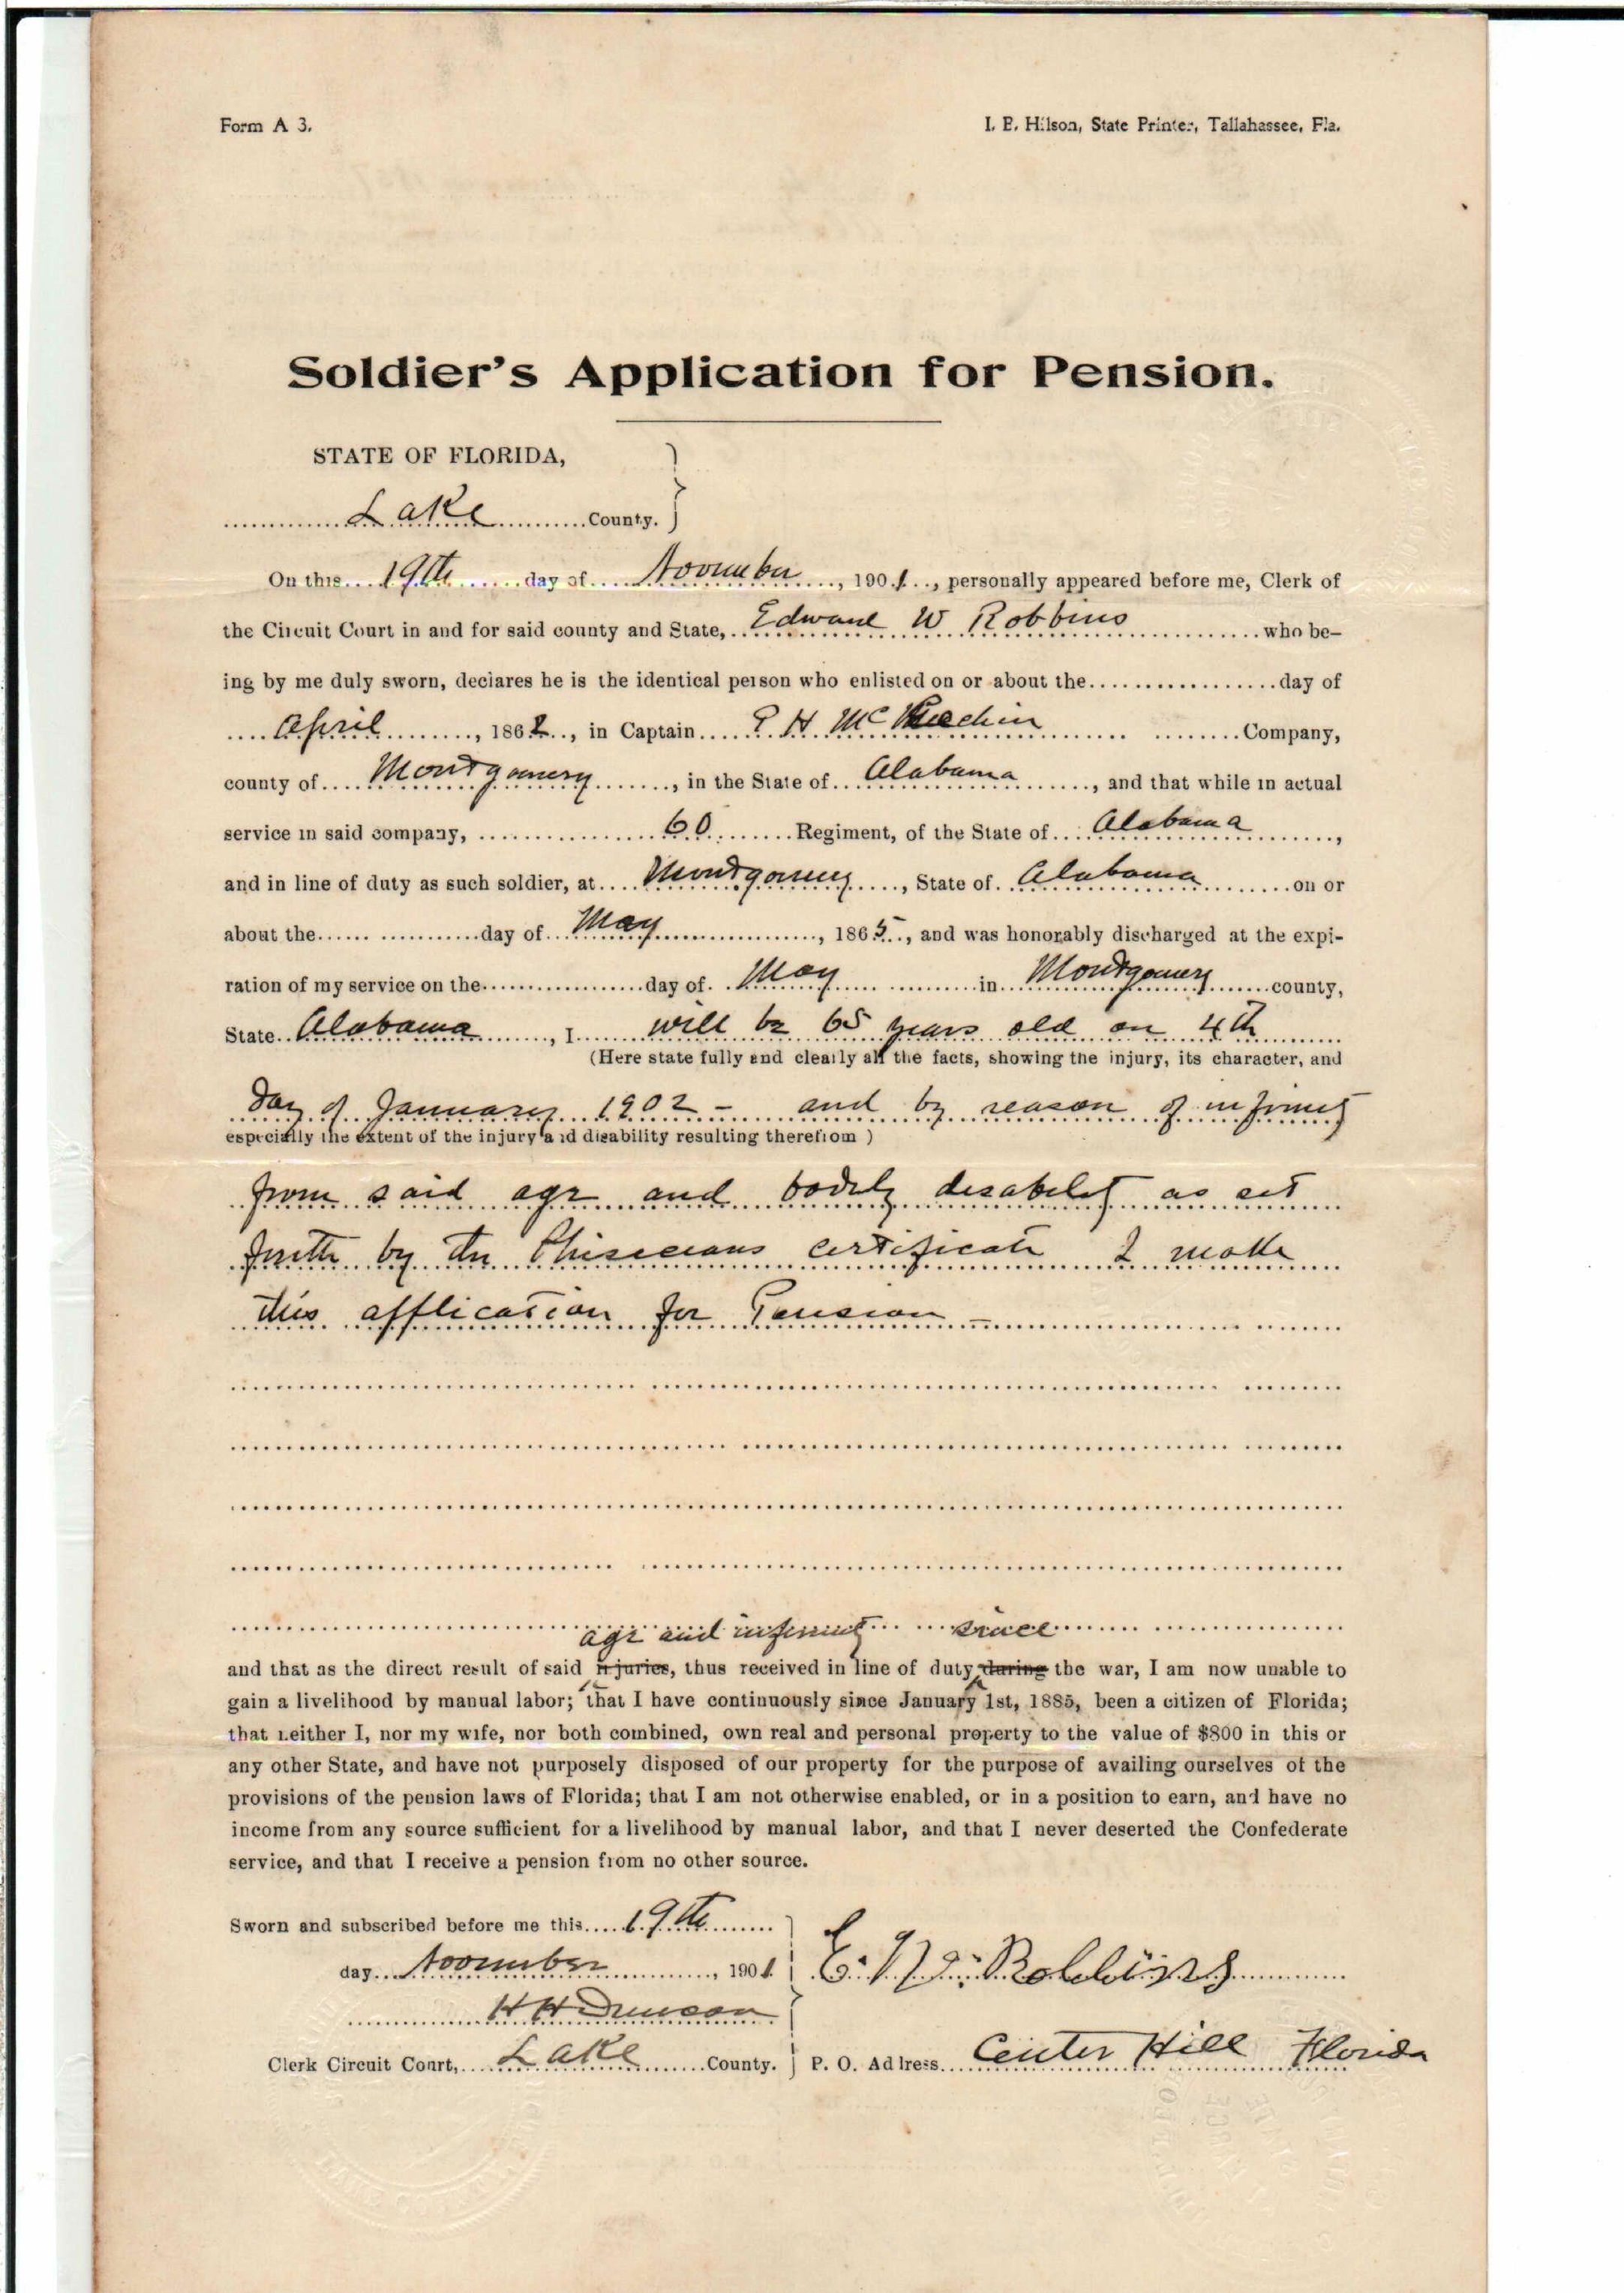 Form A 3.
I. B. Hilson, State Printer, Tallahassee, Fla.
Soldier's Application for Pension.
STATE OF FLORIDA,
Lake County.
On this 19th day of November, 1901, personally appeared before me, Clerk of
the Circuit Court in and for said county and State, Edward W Robbins who be-
ing by me duly sworn, declares he is the identical person who enlisted on or about the day of
April, 1862, in Captain P. H. Company,
county of Montgomery, in the State of Alabama, and that while in actual
service in said company, 60 Regiment, of the State of Alabama,
and in line of duty as such soldier, at Montgomery, State of Alabama on or
about the day of May, 1865, and was honorably discharged at the expi-
ration of my service on the day of May in Montgomery county,
State Alabama, I will be 65 years old on 4th
(Here state fully and clearly all the facts, showing the injury, its character, and
day of January 1902 - and by reason of infirmity
especially the extent of the injury and disability resulting therefrom )
from said age and bodily disabelity as set
forth by the Phisicians certificate I make
this application for Pension -
age and infirmity since
and that as the direct result of said injuries, thus received in line of duty during the war, I am now unable to
gain a livelihood by manual labor; that I have continuously since January 1st, 1885, been a citizen of Florida;
that neither I, nor my wife, nor both combined, own real and personal property to the value of $800 in this or
any other State, and have not purposely disposed of our property for the purpose of availing ourselves of the
provisions of the pension laws of Florida; that I am not otherwise enabled, or in a position to earn, and have no
income from any source sufficient for a livelihood by manual labor, and that I never deserted the Confederate
service, and that I receive a pension from no other source.
Sworn and subscribed before me this 19th
day November, 1901
E. W. Robbins
H H Duncan
Clerk Circuit Court, Lake County.
P. O. Address Center Hill Florida